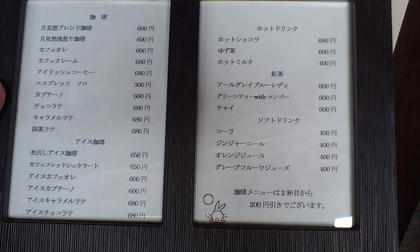 珈琲
月見想ブレンド珈琲 600円
月見想浅煎り珈琲 600円
カフェオレ 600円
カフェクレーム 680円
アイリッシュコーヒー 680円
エスプレッソ ソロ 300円
カプチーノ 600円
チョコラテ 680円
キャラメルラテ 680円
抹茶ラテ 680円
アイス珈琲
水出しアイス珈琲 650円
カフェフレッドシェケラート 650円
アイスカフェオレ 600円
アイスカプチーノ 600円
アイスキャラメルラテ 680円
アイスチョコラテ 680円
ホットドリンク
ホットショコラ 680円
ゆず茶 600円
ホットミルク 400円
紅茶
アールグレイブルーレディ 600円
グリーンティーwithマンゴー 600円
チャイ 600円
ソフトドリンク
コーラ 400円
ジンジャーエール 400円
オレンジジュース 400円
グレープフルーツジュース 400円
珈琲メニューは2杯目から
200円引きでございます。